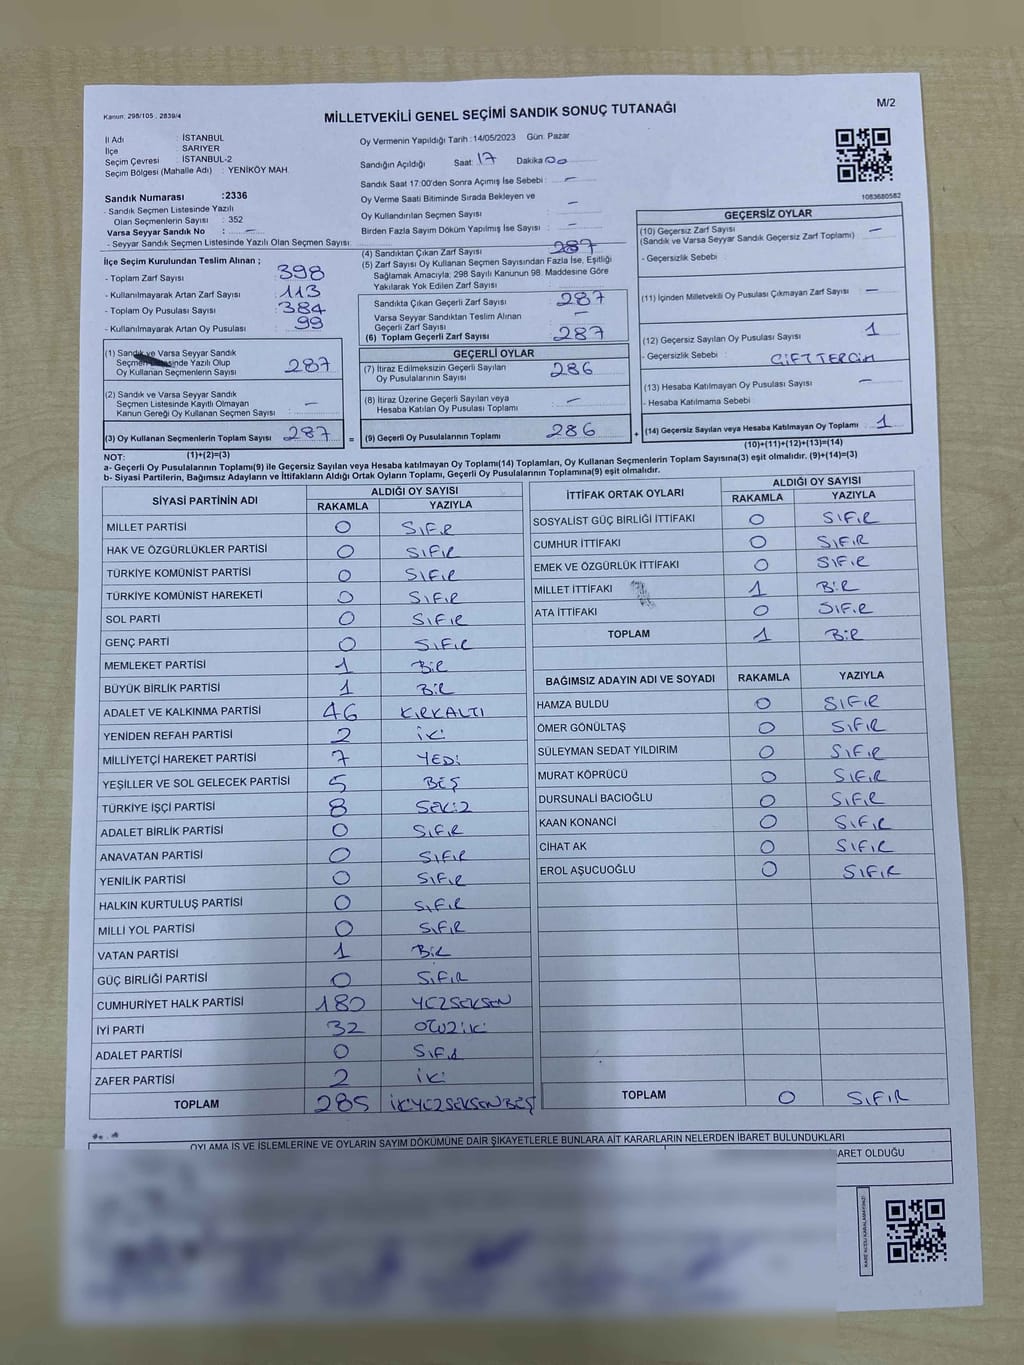 Kanun: 298/105 , 2839/4
MİLLETVEKİLİ GENEL SEÇİMİ SANDIK SONUÇ TUTANAĞI
M/2
İl Adı : İSTANBUL
İlçe : SARIYER
Seçim Çevresi : İSTANBUL-2
Seçim Bölgesi (Mahalle Adı) : YENİKÖY MAH.
Sandık Numarası : 2336
- Sandık Seçmen Listesinde Yazılı
Olan Seçmenlerin Sayısı : 352
Varsa Seyyar Sandık No : —
- Seyyar Sandık Seçmen Listesinde Yazılı Olan Seçmen Sayısı
Oy Vermenin Yapıldığı Tarih : 14/05/2023 Gün: Pazar
Sandığın Açıldığı Saat: 17 Dakika 00
Sandık Saat 17:00'den Sonra Açımış İse Sebebi : —
Oy Verme Saati Bitiminde Sırada Bekleyen ve
Oy Kullandırılan Seçmen Sayısı : —
Birden Fazla Sayım Döküm Yapılmış İse Sayısı : —
1083680582
İlçe Seçim Kurulundan Teslim Alınan ;
- Toplam Zarf Sayısı : 398
- Kullanılmayarak Artan Zarf Sayısı : 113
- Toplam Oy Pusulası Sayısı : 384
- Kullanılmayarak Artan Oy Pusulası : 99
(1) Sandık ve Varsa Seyyar Sandık
Seçmen Listesinde Yazılı Olup
Oy Kullanan Seçmenlerin Sayısı : 287
(2) Sandık ve Varsa Seyyar Sandık
Seçmen Listesinde Kayıtlı Olmayan
Kanun Gereği Oy Kullanan Seçmen Sayısı : —
(3) Oy Kullanan Seçmenlerin Toplam Sayısı : 287 =
(4) Sandıktan Çıkan Zarf Sayısı 287
(5) Zarf Sayısı Oy Kullanan Seçmen Sayısından Fazla İse, Eşitliği
Sağlamak Amacıyla; 298 Sayılı Kanunun 98. Maddesine Göre
Yakılarak Yok Edilen Zarf Sayısı :
Sandıkta Çıkan Geçerli Zarf Sayısı : 287
Varsa Seyyar Sandıktan Teslim Alınan
Geçerli Zarf Sayısı : —
(6) Toplam Geçerli Zarf Sayısı : 287
GEÇERLİ OYLAR
(7) İtiraz Edilmeksizin Geçerli Sayılan
Oy Pusulalarının Sayısı : 286
(8) İtiraz Üzerine Geçerli Sayılan veya
Hesaba Katılan Oy Pusulası Toplamı : —
(9) Geçerli Oy Pusulalarının Toplamı : 286 +
GEÇERSİZ OYLAR
(10) Geçersiz Zarf Sayısı : —
(Sandık ve Varsa Seyyar Sandık Geçersiz Zarf Toplamı)
- Geçersizlik Sebebi :
(11) İçinden Milletvekili Oy Pusulası Çıkmayan Zarf Sayısı : —
(12) Geçersiz Sayılan Oy Pusulası Sayısı : 1
- Geçersizlik Sebebi : ÇİFT TERCİH
(13) Hesaba Katılmayan Oy Pusulası Sayısı : —
- Hesaba Katılmama Sebebi :
(14) Geçersiz Sayılan veya Hesaba Katılmayan Oy Toplamı : 1
NOT: (1)+(2)=(3) (10)+(11)+(12)+(13)=(14)
a- Geçerli Oy Pusulalarının Toplamı(9) ile Geçersiz Sayılan veya Hesaba katılmayan Oy Toplamı(14) Toplamları, Oy Kullanan Seçmenlerin Toplam Sayısına(3) eşit olmalıdır. (9)+(14)=(3)
b- Siyasi Partilerin, Bağımsız Adayların ve İttifakların Aldığı Oyların Toplamı, Geçerli Oy Pusulalarının Toplamına(9) eşit olmalıdır.
SİYASİ PARTİNİN ADI ALDIĞI OY SAYISI
RAKAMLA YAZIYLA
MİLLET PARTİSİ 0 SIFIR
HAK VE ÖZGÜRLÜKLER PARTİSİ 0 SIFIR
TÜRKİYE KOMÜNİST PARTİSİ 0 SIFIR
TÜRKİYE KOMÜNİST HAREKETİ 0 SIFIR
SOL PARTİ 0 SIFIR
GENÇ PARTİ 0 SIFIR
MEMLEKET PARTİSİ 1 BİR
BÜYÜK BİRLİK PARTİSİ 1 BİR
ADALET VE KALKINMA PARTİSİ 46 KIRKALTI
YENİDEN REFAH PARTİSİ 2 İKİ
MİLLİYETÇİ HAREKET PARTİSİ 7 YEDİ
YEŞİLLER VE SOL GELECEK PARTİSİ 5 BEŞ
TÜRKİYE İŞÇİ PARTİSİ 8 SEKİZ
ADALET BİRLİK PARTİSİ 0 SIFIR
ANAVATAN PARTİSİ 0 SIFIR
YENİLİK PARTİSİ 0 SIFIR
HALKIN KURTULUŞ PARTİSİ 0 SIFIR
MİLLİ YOL PARTİSİ 0 SIFIR
VATAN PARTİSİ 1 BİR
GÜÇ BİRLİĞİ PARTİSİ 0 SIFIR
CUMHURİYET HALK PARTİSİ 180 YÜZSEKSEN
İYİ PARTİ 32 OTUZİKİ
ADALET PARTİSİ 0 SIFIR
ZAFER PARTİSİ 2 İKİ
TOPLAM 285 İKİYÜZSEKSENBEŞ
İTTİFAK ORTAK OYLARI ALDIĞI OY SAYISI
RAKAMLA YAZIYLA
SOSYALİST GÜÇ BİRLİĞİ İTTİFAKI 0 SIFIR
CUMHUR İTTİFAKI 0 SIFIR
EMEK VE ÖZGÜRLÜK İTTİFAKI 0 SIFIR
MİLLET İTTİFAKI 1 BİR
ATA İTTİFAKI 0 SIFIR
TOPLAM 1 BİR
BAĞIMSIZ ADAYIN ADI VE SOYADI RAKAMLA YAZIYLA
HAMZA BULDU 0 SIFIR
ÖMER GÖNÜLTAŞ 0 SIFIR
SÜLEYMAN SEDAT YILDIRIM 0 SIFIR
MURAT KÖPRÜCÜ 0 SIFIR
DURSUNALİ BACIOĞLU 0 SIFIR
KAAN KONANCİ 0 SIFIR
CİHAT AK 0 SIFIR
EROL AŞUCUOĞLU 0 SIFIR
TOPLAM 0 SIFIR
OYLAMA İŞ VE İŞLEMLERİNE VE OYLARIN SAYIM DÖKÜMÜNE DAİR ŞİKAYETLERLE BUNLARA AİT KARARLARIN NELERDEN İBARET BULUNDUKLARI
BARET OLDUĞU
KARE KODU KARALAMAYINIZ!